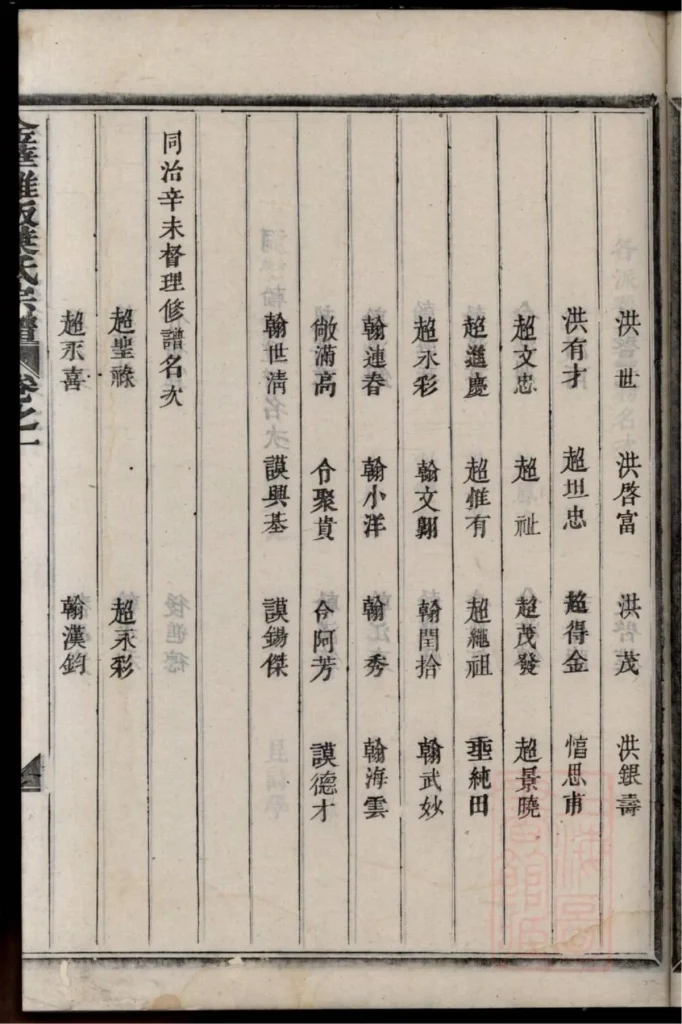 洪世 洪啓富 洪茂 洪銀壽
洪有才 超坦忠 超得金 愭思甫
超文忠 超祉 超茂發 超景曉
超進慶 超惟有 超繩祖 垂純田
超永彩 翰文翺 翰閏拾 翰武妙
翰連春 翰小洋 翰秀 翰海雲
滿高 令聚貴 令阿芳 謨德才
翰世清 謨興基 謨錫傑
同治辛未督理修譜名次
超聖祿 超永彩
超永喜 翰漢鈞
金華 葉氏宗譜 卷之一